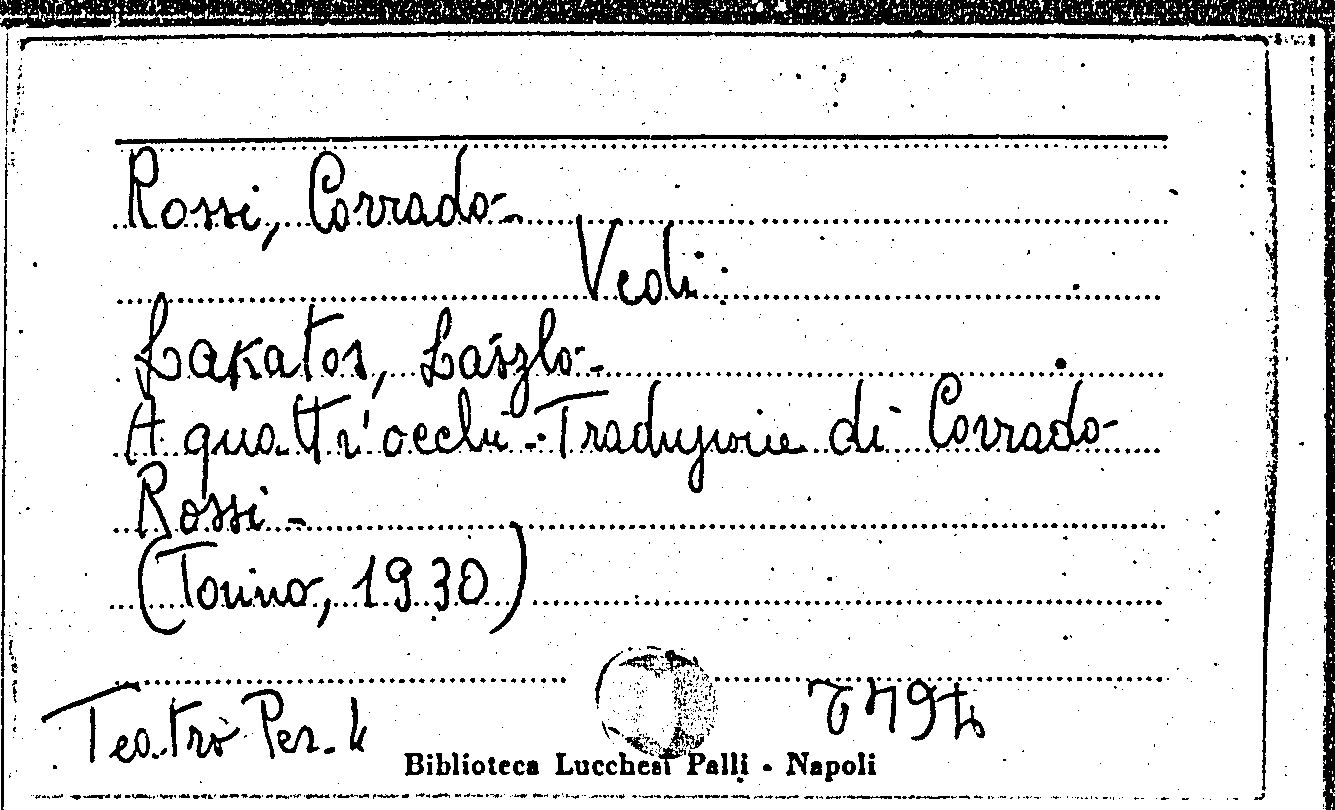 Rossi, Corrado-
Vedi:
Lakatos, László-
A quattr'occhi-Traduzione di Corrado
Rossi-
(Torino, 1930)
Teatro Per. k
Biblioteca Lucchesi Palli - Napoli